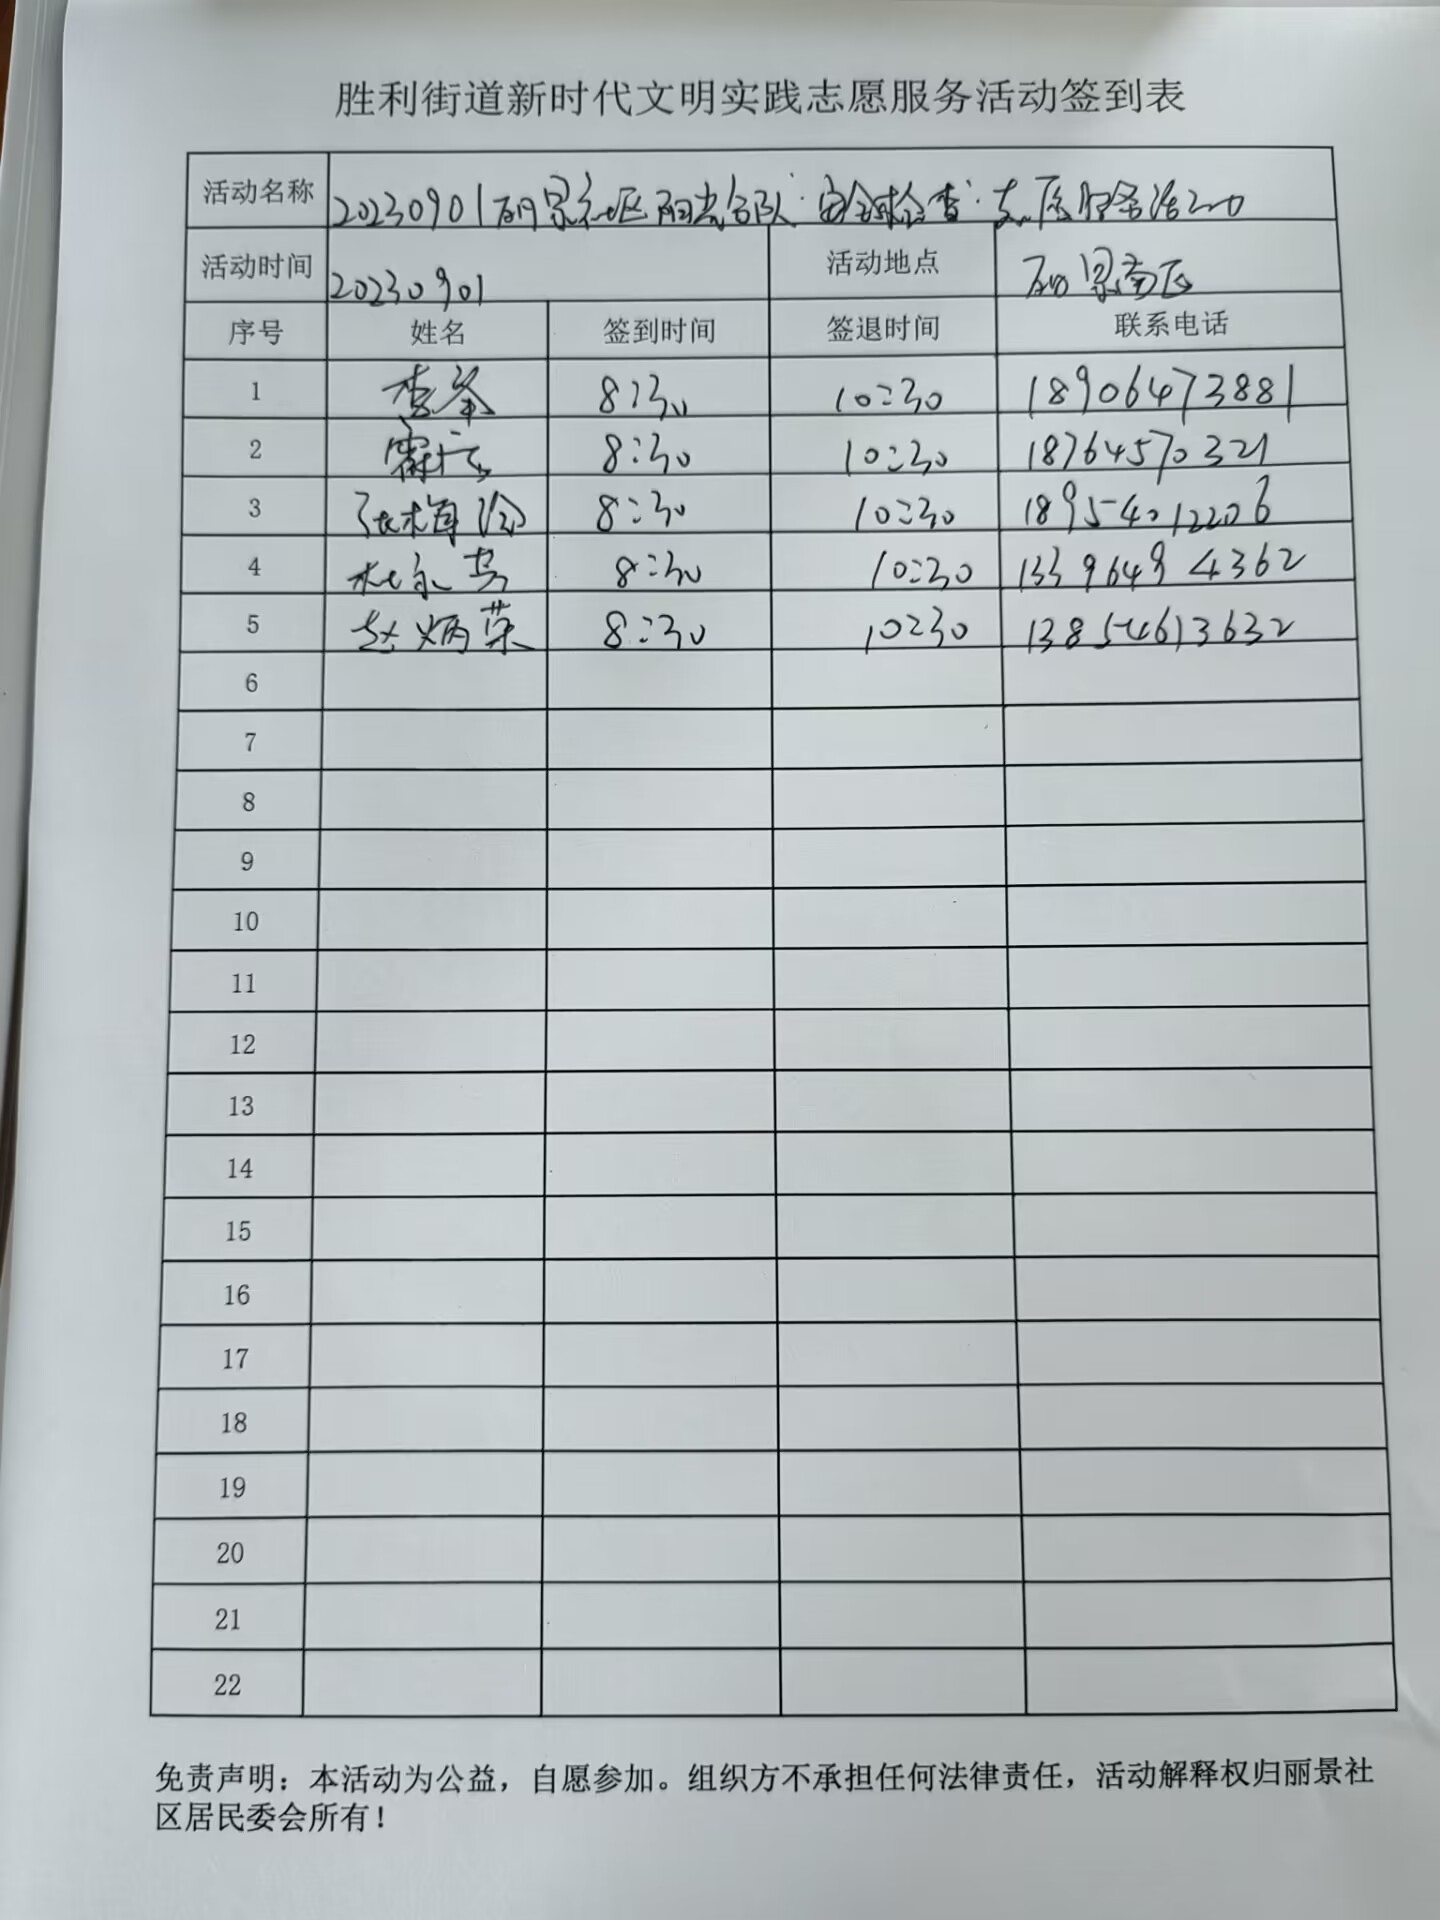 胜利街道新时代文明实践志愿服务活动签到表
活动名称 20230901丽景社区阳光 队"安全检查"志愿服务活动
活动时间 20230901 活动地点 丽景南区
序号 姓名 签到时间 签退时间 联系电话
1 8:30 10:30 18906473881
2 8:30 10:30 18764570321
3 张梅 8:30 10:30 18954012206
4 杜 8:30 10:30 13396494362
5 赵炳荣 8:30 10:30 13854613632
6
7
8
9
10
11
12
13
14
15
16
17
18
19
20
21
22
免责声明：本活动为公益，自愿参加。组织方不承担任何法律责任，活动解释权归丽景社
区居民委会所有！